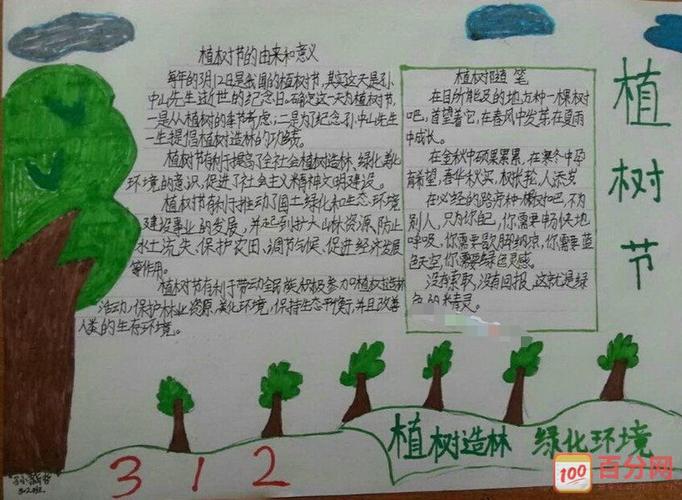 植树节的由来和意义
每年的3月12日是我国的植树节,其实这天是孙
中山先生逝世的纪念日。确定这一天为植树节,
一是从植树的季节考虑;二是为了纪念孙中山先生
一生提倡植树造林的功绩。
植树节有利于提高了全社会植树造林、绿化美化
环境的意识,促进了社会主义精神文明建设。
植树节有利于推动了国土绿化和生态环境
建设事业的发展,并起到扩大山林资源、防止
水土流失、保护农田、调节气候、促进经济发展
等作用。
植树节有利于带动全民族积极参加植树造林
活动,保护林业资源,美化环境,保持生态平衡,并且改善
人类的生存环境。
植树节随笔
在目所能及的地方种一棵树
吧,首望着它,在春风中发芽,在夏雨
中成长。
在金秋中硕果累累,在寒冬中孕
育希望,春华秋实,树长轮,人添岁。
在必经的路旁种一棵树吧,不为
别人,只为自己,你需要畅快地
呼吸,你需要歇脚纳凉,你需要蓝
色天空,你需要绿色灵感。
没有索取,没有回报,这就是绿
色的精灵。
植树节
植树造林 绿化环境
312
3.2班
100 百分网